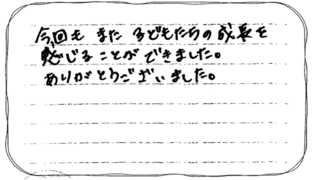 今回も また 子どもたちの成長を
感じることが できました。
ありがとうございました。